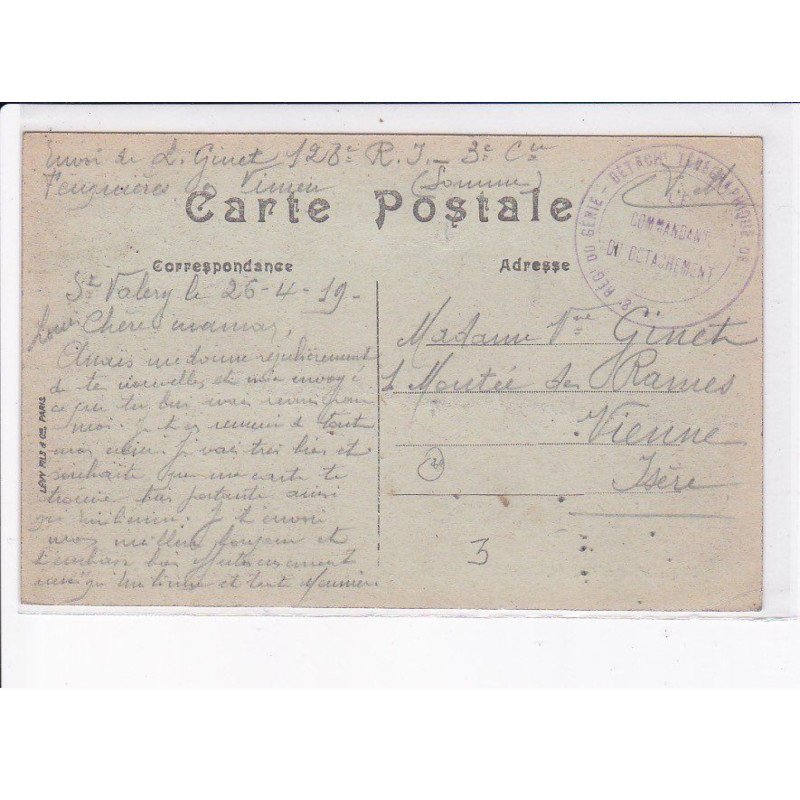 Envoi de L. Ginet 128e R.I. 3e Cie
Feuquières Vimeu (Somme)
Carte Postale
Correspondance
Adresse
8e RÉG. DU GÉNIE - DÉTACHT TÉLÉGRAPHIQUE DE
LE
COMMANDANT
DU DÉTACHEMENT
St Valery le 26-4-19-
Chère maman,
Anaïs me donne régulièrement
de te nouvelles et m'a envoyé
ce que tu lui avais remis pour
moi. Je t'en remercie de tout
mon cœur. Je vais très bien et
souhaite que ma carte te
trouve bien portante ainsi
Je t'envoie
mon meilleur bonjour et
t'embrasse bien affectueusement
ainsi qu' et toute
LÉVY FILS & CIE, PARIS
Madame Vve Ginet
1 Montée des Rames
Vienne
Isère
3